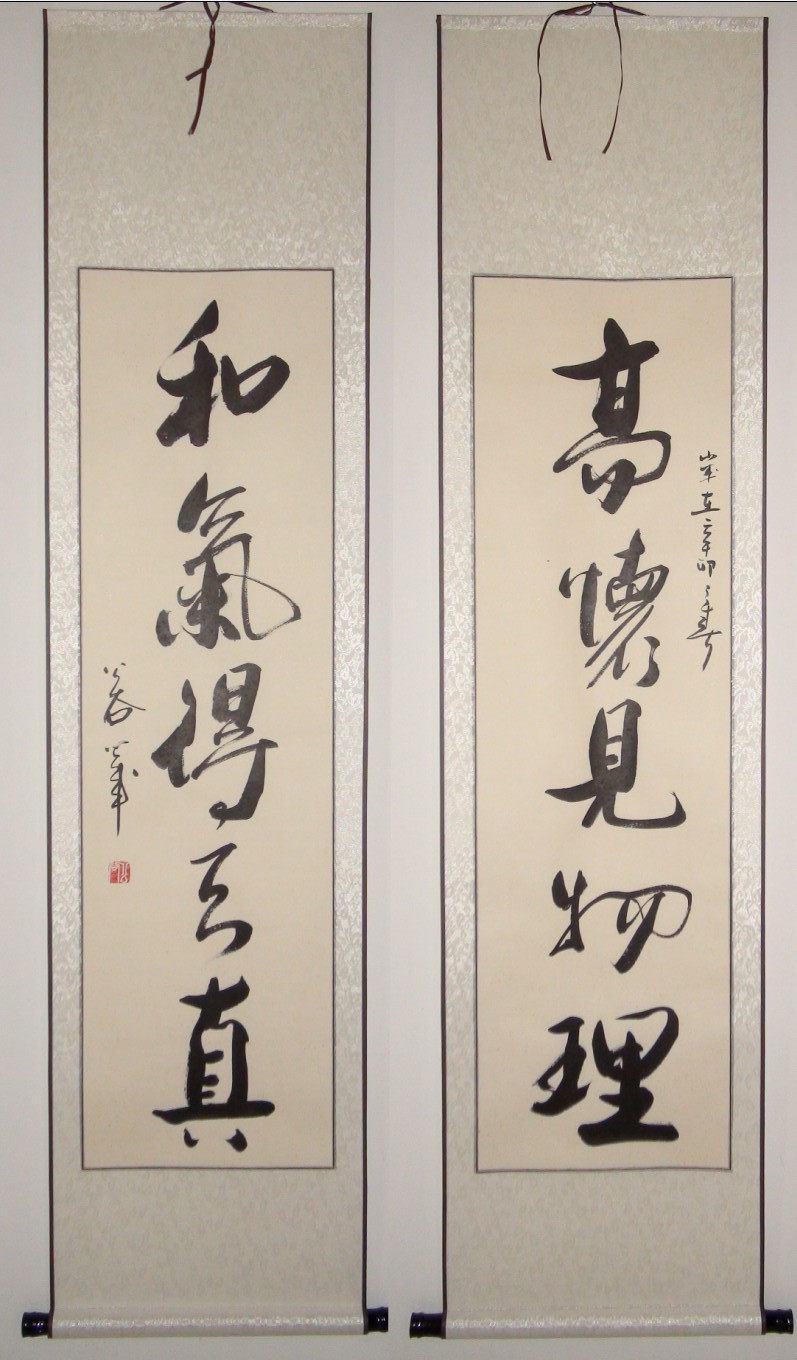 高懷見物理
歲在辛卯之春
和氣得天真